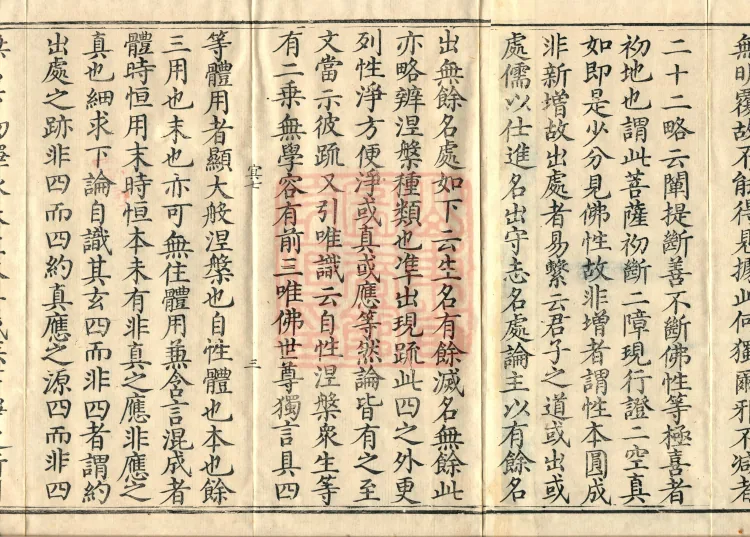 無明覆故不能得見據此何獨爾邪不減者
二十二略云闡提斷善不斷佛性等極喜者
初地也謂此菩薩初斷二障現行證二空真
如即是少分見佛性故非增者謂性本圓成
非新增故出處者易繫云君子之道或出或
處儒以仕進名出守志名處論主以有餘名
出無餘名處如下云生名有餘滅名無餘此
亦略辨涅槃種類也準出現疏此四之外更
列性淨方便淨或真或應等然論皆有之至
文當示彼疏又引唯識云自性涅槃眾生等
有二乘無學容有前三唯佛世尊獨言具四
三
等體用者顯大般涅槃也自性體也本也餘
三用也末也亦可無住體用兼含言混成者
體時恒用末時恒本未有非真之應非應之
真也細求下論自識其玄四而非四者謂約
出處之跡非四而四約真應之源四而非四